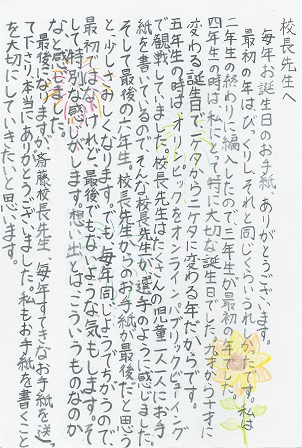 校長先生へ
毎年お誕生日のお手紙、ありがとうございます。
最初の年は、びっくり、それと同じくらいうれしかったです。私は
二年生の終わりに編入したので、三年生が最初の年でした。
四年生の時は、私にとって特に大切な誕生日でした。九才から十才に
変わる誕生日で一ケタから二ケタに変わる年だからです。
五年生の時は、オリンピックをオンラインパブリックビューイング
で観戦していました。校長先生はたくさんの児童一人一人にお手
紙を書いているので、そんな校長先生が選手のように感じました。
そして最後の六年生、校長先生からのお手紙が最後だと思う
と少しさみしくなります。でも、毎年同じようでちがうので、
最初ではないけれど、最後でもないような気もします。そ
して特別な感じがします。想い出とはこういうものなのか
なと感じました。
最後になりますが斎藤校長先生、毎年すてきなお手紙を送っ
て下さり、本当にありがとうございました。私もお手紙を書くこと
を大切にしていきたいと思います。